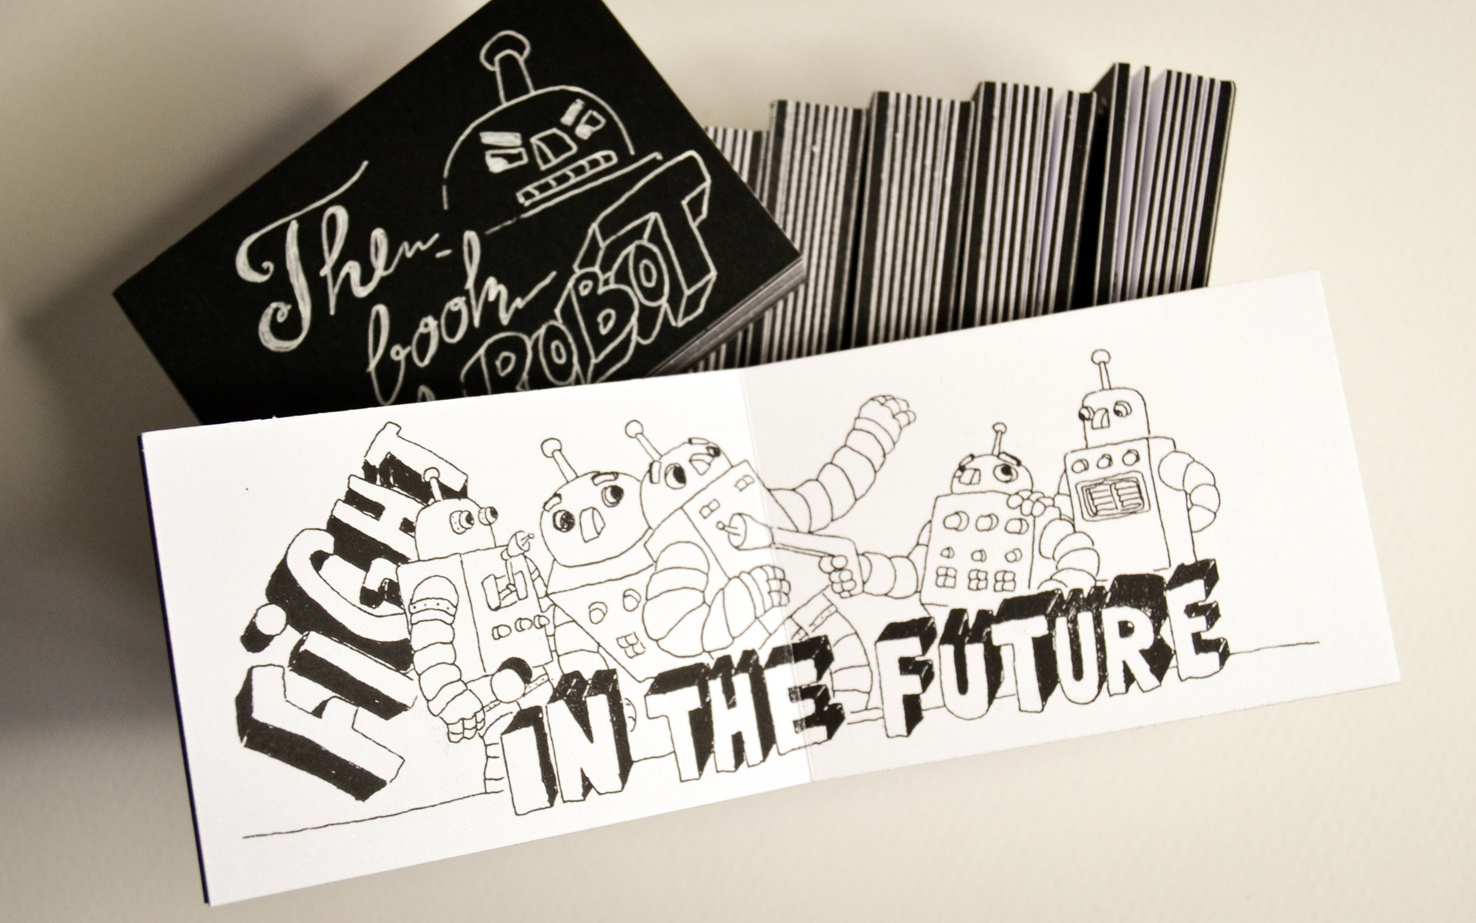 The
book
ROBOT
FiGHT
IN THE FUTURE